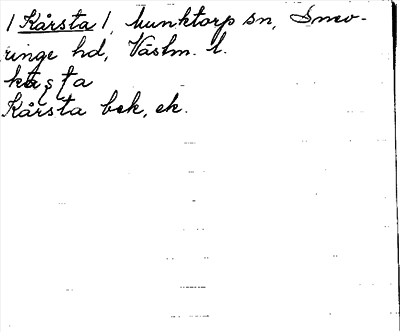 / Kårsta /, Munktorp sn, Snev-
ringe hd, Västm. l.
kåʂta
Kårsta bek, ek.